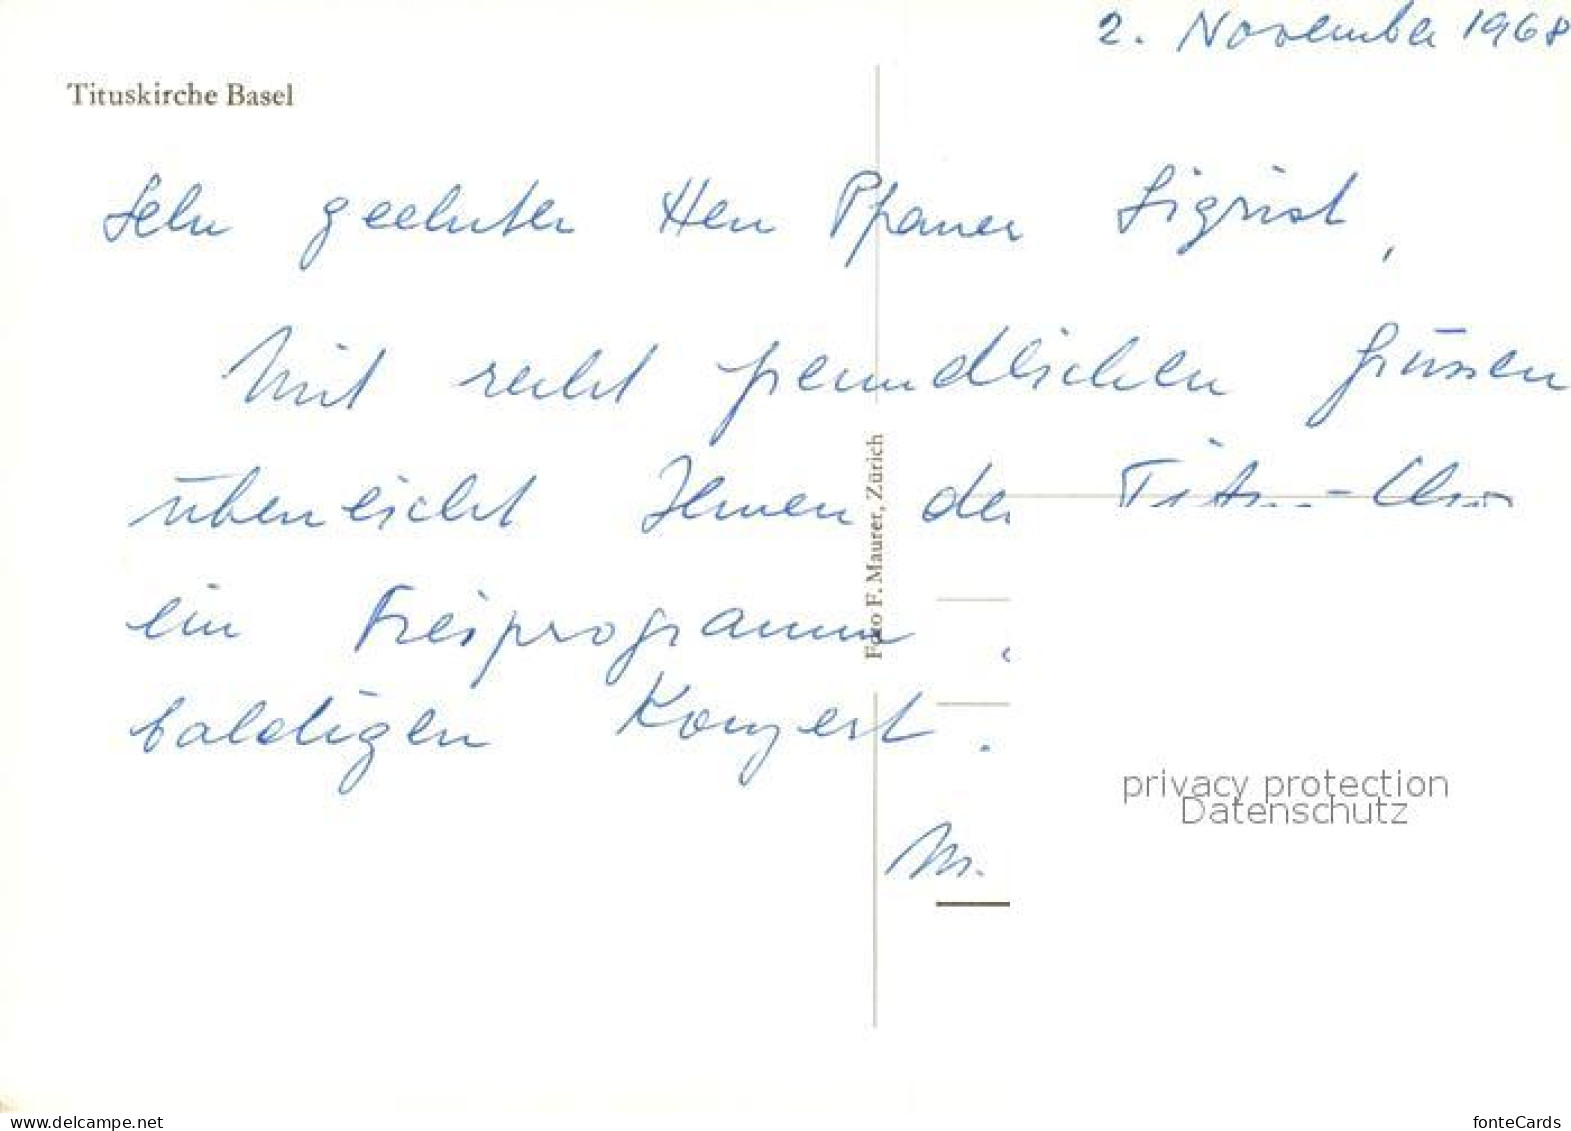 2. November 1968
Tituskirche Basel
Sehr geehrter Herr Pfarrer Sigrist,
Mit recht freundlichen Grüssen
überreicht Ihnen der Titus-Chor
ein Freiprogramm
baldigen Konzert.
M.
Foto F. Maurer, Zürich
privacy protection
Datenschutz
www.delcampe.net
fonteCards